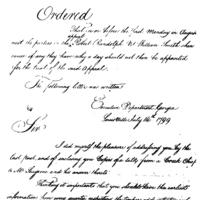 Ordered
That on or before the first Monday in August
next the parties in the appeal Robert Randolph Vs William Smith shew
cause if any they have why a day should not then be appointed
for the trial of the said Appeal
The following letter was written
Executive Department Georgia
Louisville July 16th 1799
Sir
I did myself the pleasure of addressing you by the
last post and of inclosing you Copies of a talk from a Creek Chief
to Mr. and his answer thereto
Thinking it important that you should have the earliest
information